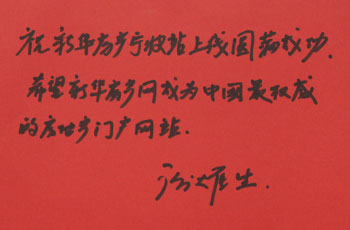 祝新华房产改站上线圆满成功.
希望新华房产网成为中国最权威
的房地产门户网站.
孙达生.